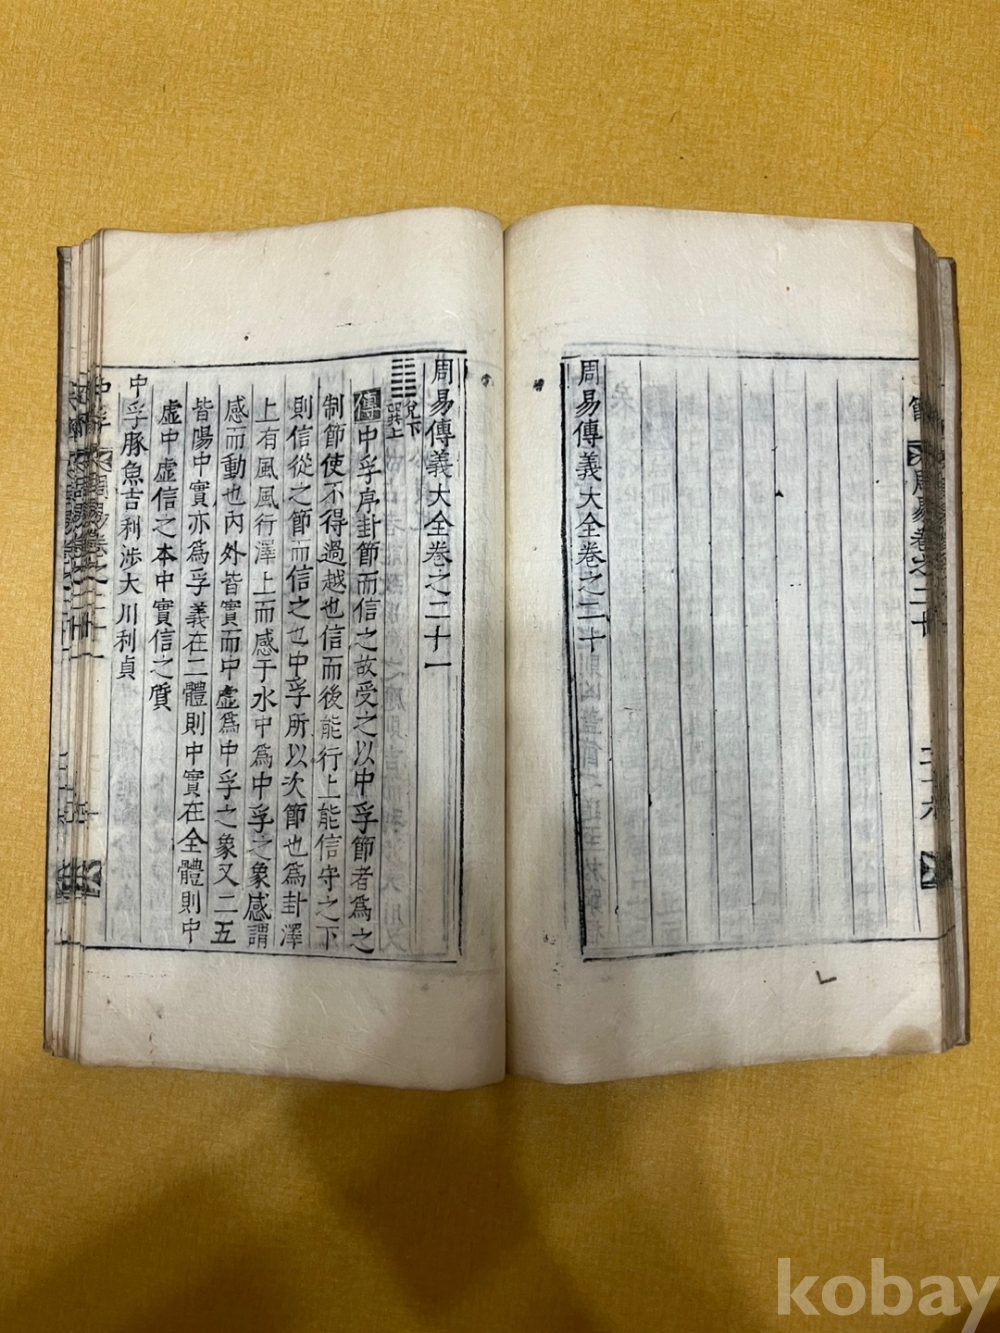 周易傳義大全卷之二十
周易傳義大全卷之二十一
兌下
巽上
傳中孚序卦節而信之故受之以中孚節者爲之
制節使不得過越也信而後能行上能信守之下
則信從之節而信之也中孚所以次節也爲卦澤
上有風風行澤上而感于水中爲中孚之象感謂
感而動也內外皆實而中虛爲中孚之象又二五
皆陽中實亦爲孚義在二體則中實在全體則中
虛中虛信之本中實信之質
中孚豚魚吉利涉大川利貞
kobay